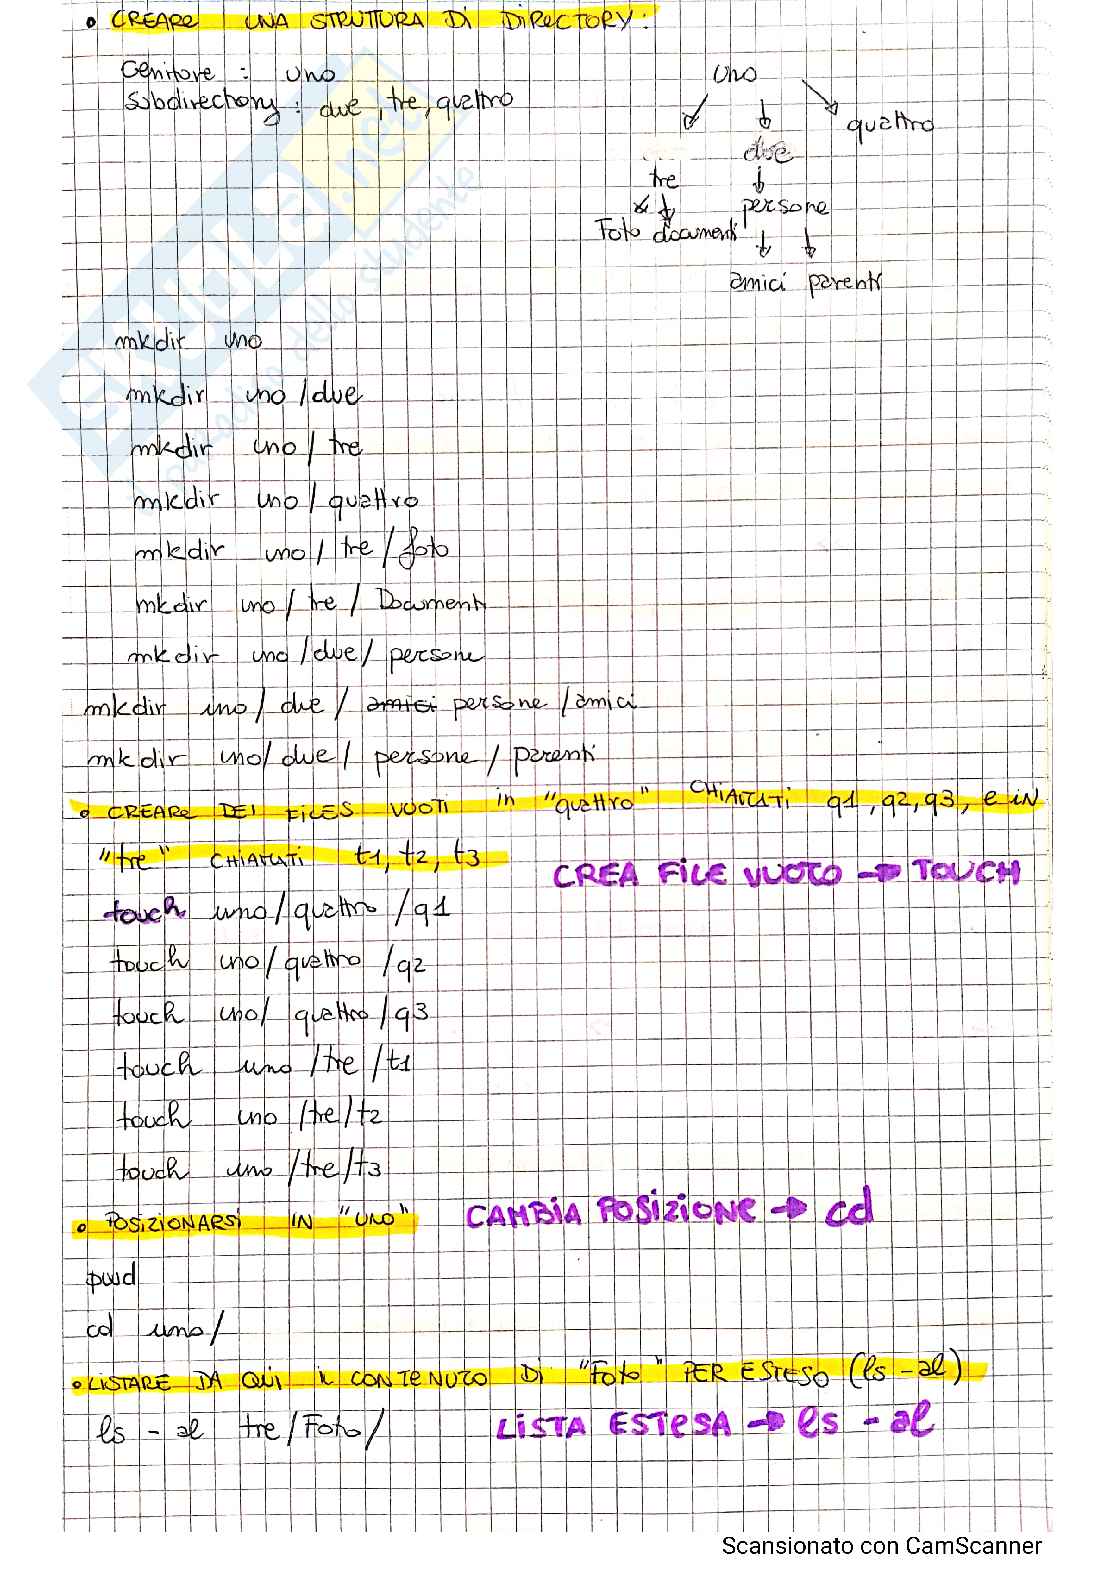 • CREARE UNA STRUTTURA DI DIRECTORY:
Genitore : uno
Subdirectory : due, tre, quattro
uno
quattro
due
tre
persone
Foto documenti
amici parenti
mkdir uno
mkdir uno/due
mkdir uno/tre
mkdir uno/quattro
mkdir uno/tre/foto
mkdir uno/tre/Documenti
mkdir uno/due/persone
mkdir uno/due/amici persone/amici
mkdir uno/due/persone/parenti
• CREARE DEI FILES VUOTI in "quattro" CHIAMATI q1, q2, q3, e in
"tre" CHIAMATI t1, t2, t3
CREA FILE VUOTO → TOUCH
touch uno/quattro/q1
touch uno/quattro/q2
touch uno/quattro/q3
touch uno/tre/t1
touch uno/tre/t2
touch uno/tre/t3
• POSIZIONARSI IN "UNO"
CAMBIA POSIZIONE → cd
pwd
cd uno/
• LISTARE DA QUI IL CONTENUTO DI "Foto" PER ESTESO (ls -al)
ls -al tre/Foto/
LISTA ESTESA → ls -al
SKUOLA.net
paradiso dello studente
Scansionato con CamScanner